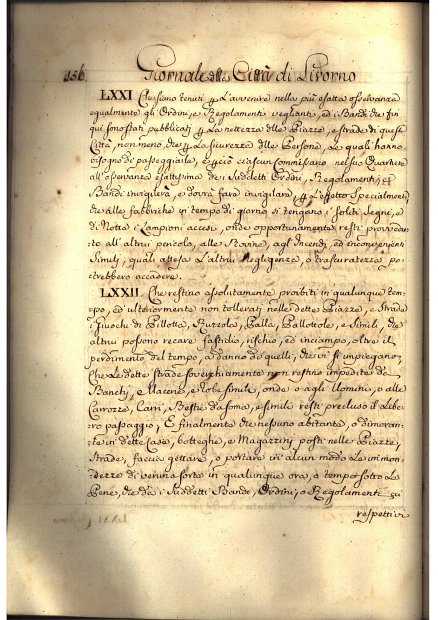 156. Giornale della Città di Livorno
LXXI Che siano tenuti p L'avvenire nella più esatta osservanza
egualmente gli Ordini, e Regolamenti veglianti, ed i Bandi che fin
qui sono stati pubblicati p La nettezza delle Piazze, e strade di questa
Città, non meno che p La sicurezza delle Persone, Le quali hanno
bisogno di passeggiarle, e perciò ciascun Commissario nel suo Quartiere
all'osservanza esattissima de i Suddetti Ordini, Regolamenti, et
Bandi invigilerà, e dovrà fare invigilare, p L'effetto Specialmente
che alle fabbriche in tempo di giorno si tengano i soliti Segni, e
di Notte i Lampioni accesi, onde opportunamente resti provvedu-
to all'altrui pericolo, alle Rovine, agl'Incendi, ed inconvenienti
Simili, quali attesa L'altrui Negligenza, o trascuratezza po-
trebbero accadere.
LXXII. Che restino assolutamente proibiti in qualunque tem-
po, ed ulteriormente non tollerati nelle dette Piazze, e Strade
i Giuochi di Pillotta, Ruzzola, Palla, Pallottole, e Simili, che
altrui possono recare fastidio, rischio, ed inciampo, oltre il
perdimento del tempo, a danno di quelli, che vi si impiegano,
Che Le dette strade soverchiamente non restino impedite da
Banchi, e Macerie, e Robe simili, onde o agli Uomini, o alle
Carrozze, Carri, Bestie da soma, e simili resti precluso il Libe-
ro passaggio; E finalmente che nessuno abitante, o dimoran-
te in dette Case, botteghe, e Magazzini posti nelle Piazze,
Strade, faccia gettare, o portare in alcun modo Le immon-
dezze di veruna sorte in qualunque ora, o tempo sotto Le
Pene, che da i Suddetti Bandi, Ordini, o Regolamenti su
respettivi